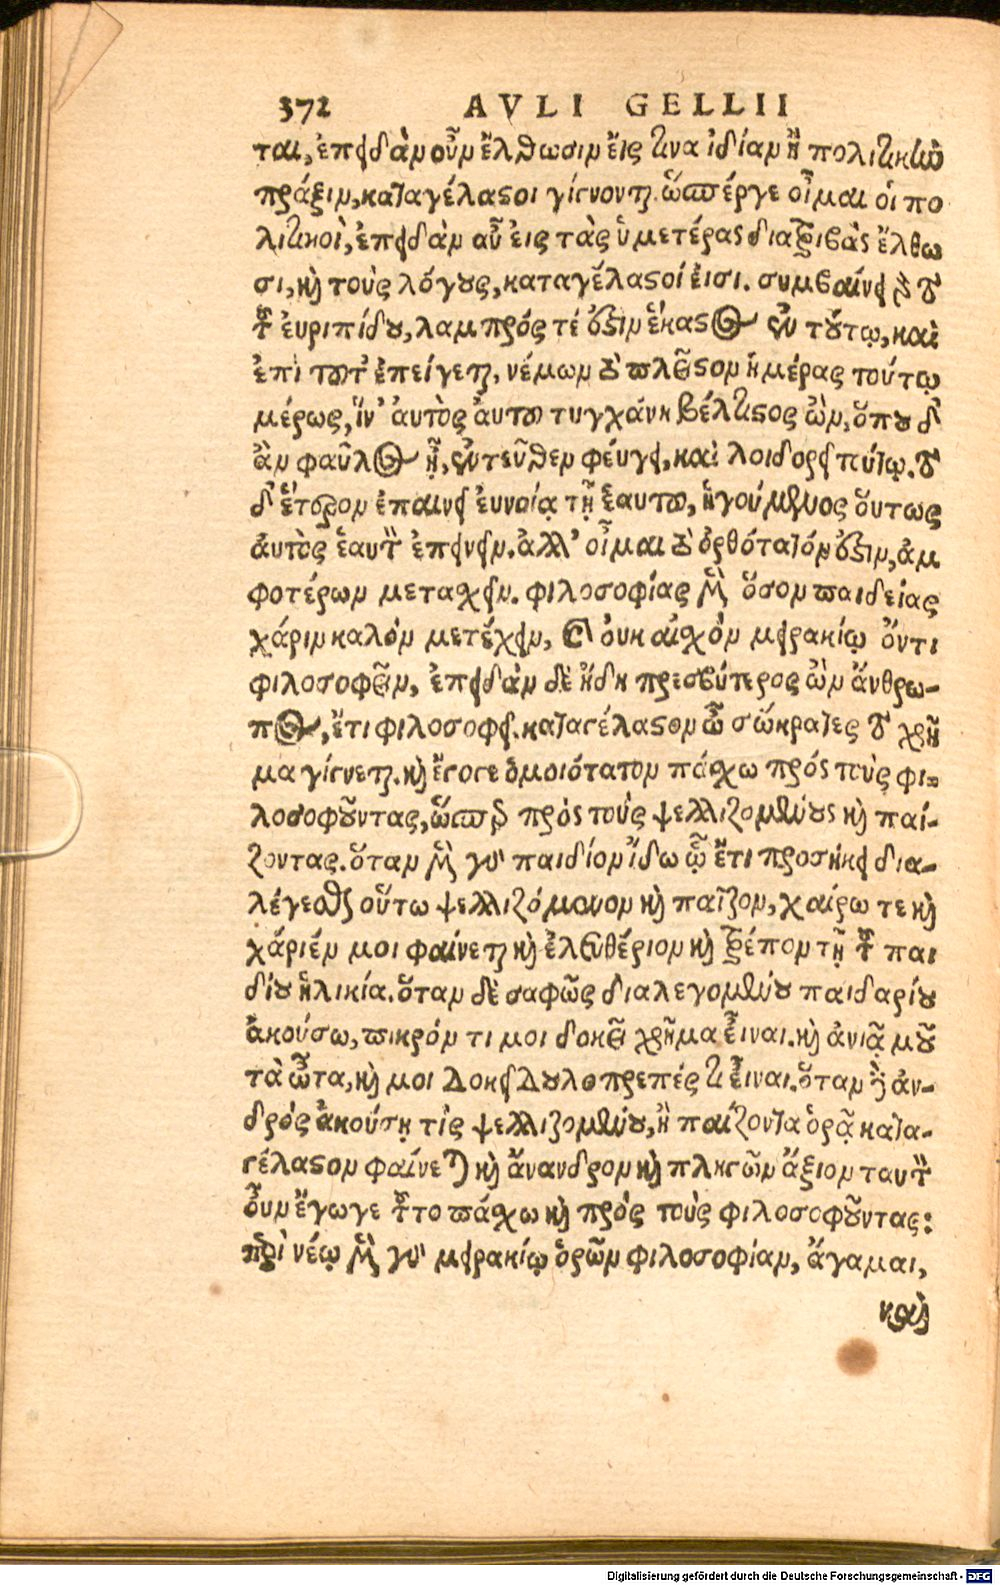 372 AVLI GELLII
ται, ἐπειδὰν οὖν ἔλθωσιν εἴς τινα ἰδίαν ἢ πολιτικὴν
πρᾶξιν, καταγέλαστοι γίγνονται. ὥσπέργε οἶμαι οἱ πο
λιτικοὶ, ἐπειδὰν αὖ εἰς τὰς ὑμετέρας διατριβὰς ἔλθω
σι, καὶ τοὺς λόγους, καταγέλαστοί εἰσι. συμβαίνει γὰρ τὸ
τοῦ ἐυριπίδου, λαμπρός τέ ἐστιν ἕκαστος ἐν τούτῳ, καὶ
ἐπὶ τοῦτ' ἐπείγεται, νέμων τὸ πλεῖστον ἡμέρας τούτῳ
μέρος, ἵν' ἀυτὸς ἁυτοῦ τυγχάνη βέλτιστος ὢν, ὅπου δ'
ἂν φαῦλος ᾖ, ἐντεῦθεν φέυγει, καὶ λοιδορεῖ τοῦτο. τὸ
δ' ἕτερον ἐπαινεῖ ἐυνοίᾳ τῇ ἑαυτοῦ, ἡγούμενος ὅυτως
ἀυτὸς ἑαυτὸν ἐπαινεῖν. ἀλλ' οἶμαι τὸ ὀρθότατόν ἐστιν, ἀμ
φοτέρων μετασχεῖν. φιλοσοφίας μὲν ὅσον παιδείας
χάριν καλὸν μετέχειν, καὶ ὀυκ αἰσχρὸν μειρακίῳ ὄντι
φιλοσοφεῖν, ἐπειδὰν δὲ ἤδη πρεσβύτερος ὢν ἄνθρω-
πος, ἔτι φιλοσοφεῖ. καταγέλαστον ὦ σώκρατες τὸ χρῆ
μα γίγνεται. καὶ ἔγωγε ὁμοιότατον πάσχω πρὸς τοὺς φι-
λοσοφοῦντας, ὥσπερ πρὸς τοὺς ψελλιζομένους καὶ παί-
ζοντας. ὅταν μὲν γὰρ παιδίον ἴδω ᾧ ἔτι προσήκει δια-
λέγεσθαι ὅυτω ψελλιζόμενον καὶ παῖζον, χαίρω τε καὶ
χάριέν μοι φαίνεται καὶ ἐλευθέριον καὶ πρέπον τῇ τοῦ παι
δίου ἡλικία. ὅταν δὲ σαφῶς διαλεγομένου παιδαρίου
ἀκούσω, πικρόν τι μοι δοκεῖ χρῆμα εἶναι. καὶ ἀνιᾷ μοῦ
τὰ ὦτα, καὶ μοι δοκεῖ δουλοπρεπές τι εἶναι. ὅταν δὲ ἀν-
δρὸς ἀκούσῃ τὶς ψελλιζομένου, ἢ παίζοντα ὁρᾷ κατα-
γέλαστον φαίνεται καὶ ἄνανδρον καὶ πληγῶν ἄξιον ταυτὸν
οὖν ἔγωγε τοῦτο πάσχω καὶ πρὸς τοὺς φιλοσοφοῦντας:
παρὰ νέῳ μὲν γὰρ μειρακίῳ ὁρῶν φιλοσοφίαν, ἄγαμαι,
καὶ
Digitalisierung gefördert durch die Deutsche Forschungsgemeinschaft - DFG